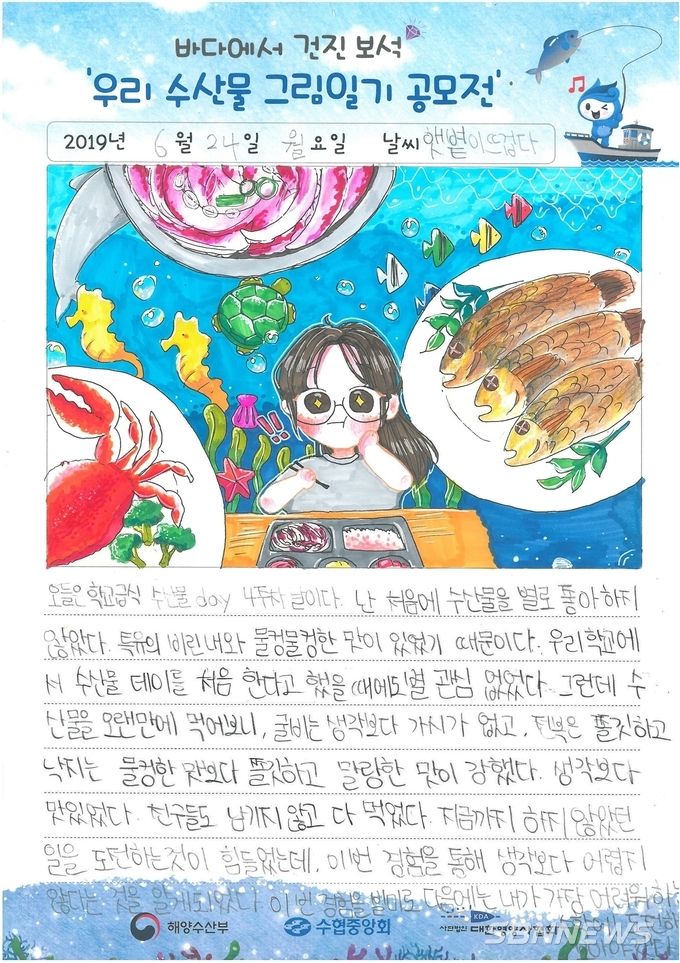 바다에서 건진 보석
'우리 수산물 그림일기 공모전'
2019년 6월 24일 월요일 날씨 햇볕이뜨겁다
오늘은 학교급식 수산물 day 4주차 날이다. 난 처음에 수산물을 별로 좋아하지
않았다. 특유의 비린내와 물컹물컹한 맛이 있었기 때문이다. 우리학교에
서 수산물 데이를 처음 한다고 했을 때에도 별 관심 없었다. 그런데 수
산물을 오랜만에 먹어보니, 굴비는 생각보다 가시가 없고, 전복은 쫄깃하고
낙지는 물컹한 맛보다 쫄깃하고 말랑한 맛이 강했다. 생각보다
맛있었다. 친구들도 남기지 않고 다 먹었다. 지금까지 하지 않았던
일을 도전하는것이 힘들었는데, 이번 경험을 통해 생각보다 어렵지
않다는 것을 알게되었다. 이번 경험을 발미로 다음에는 내가 가장 어려워하는
해양수산부
수협중앙회
KDA
사단법인 대한영양사협회
SBNNEWS